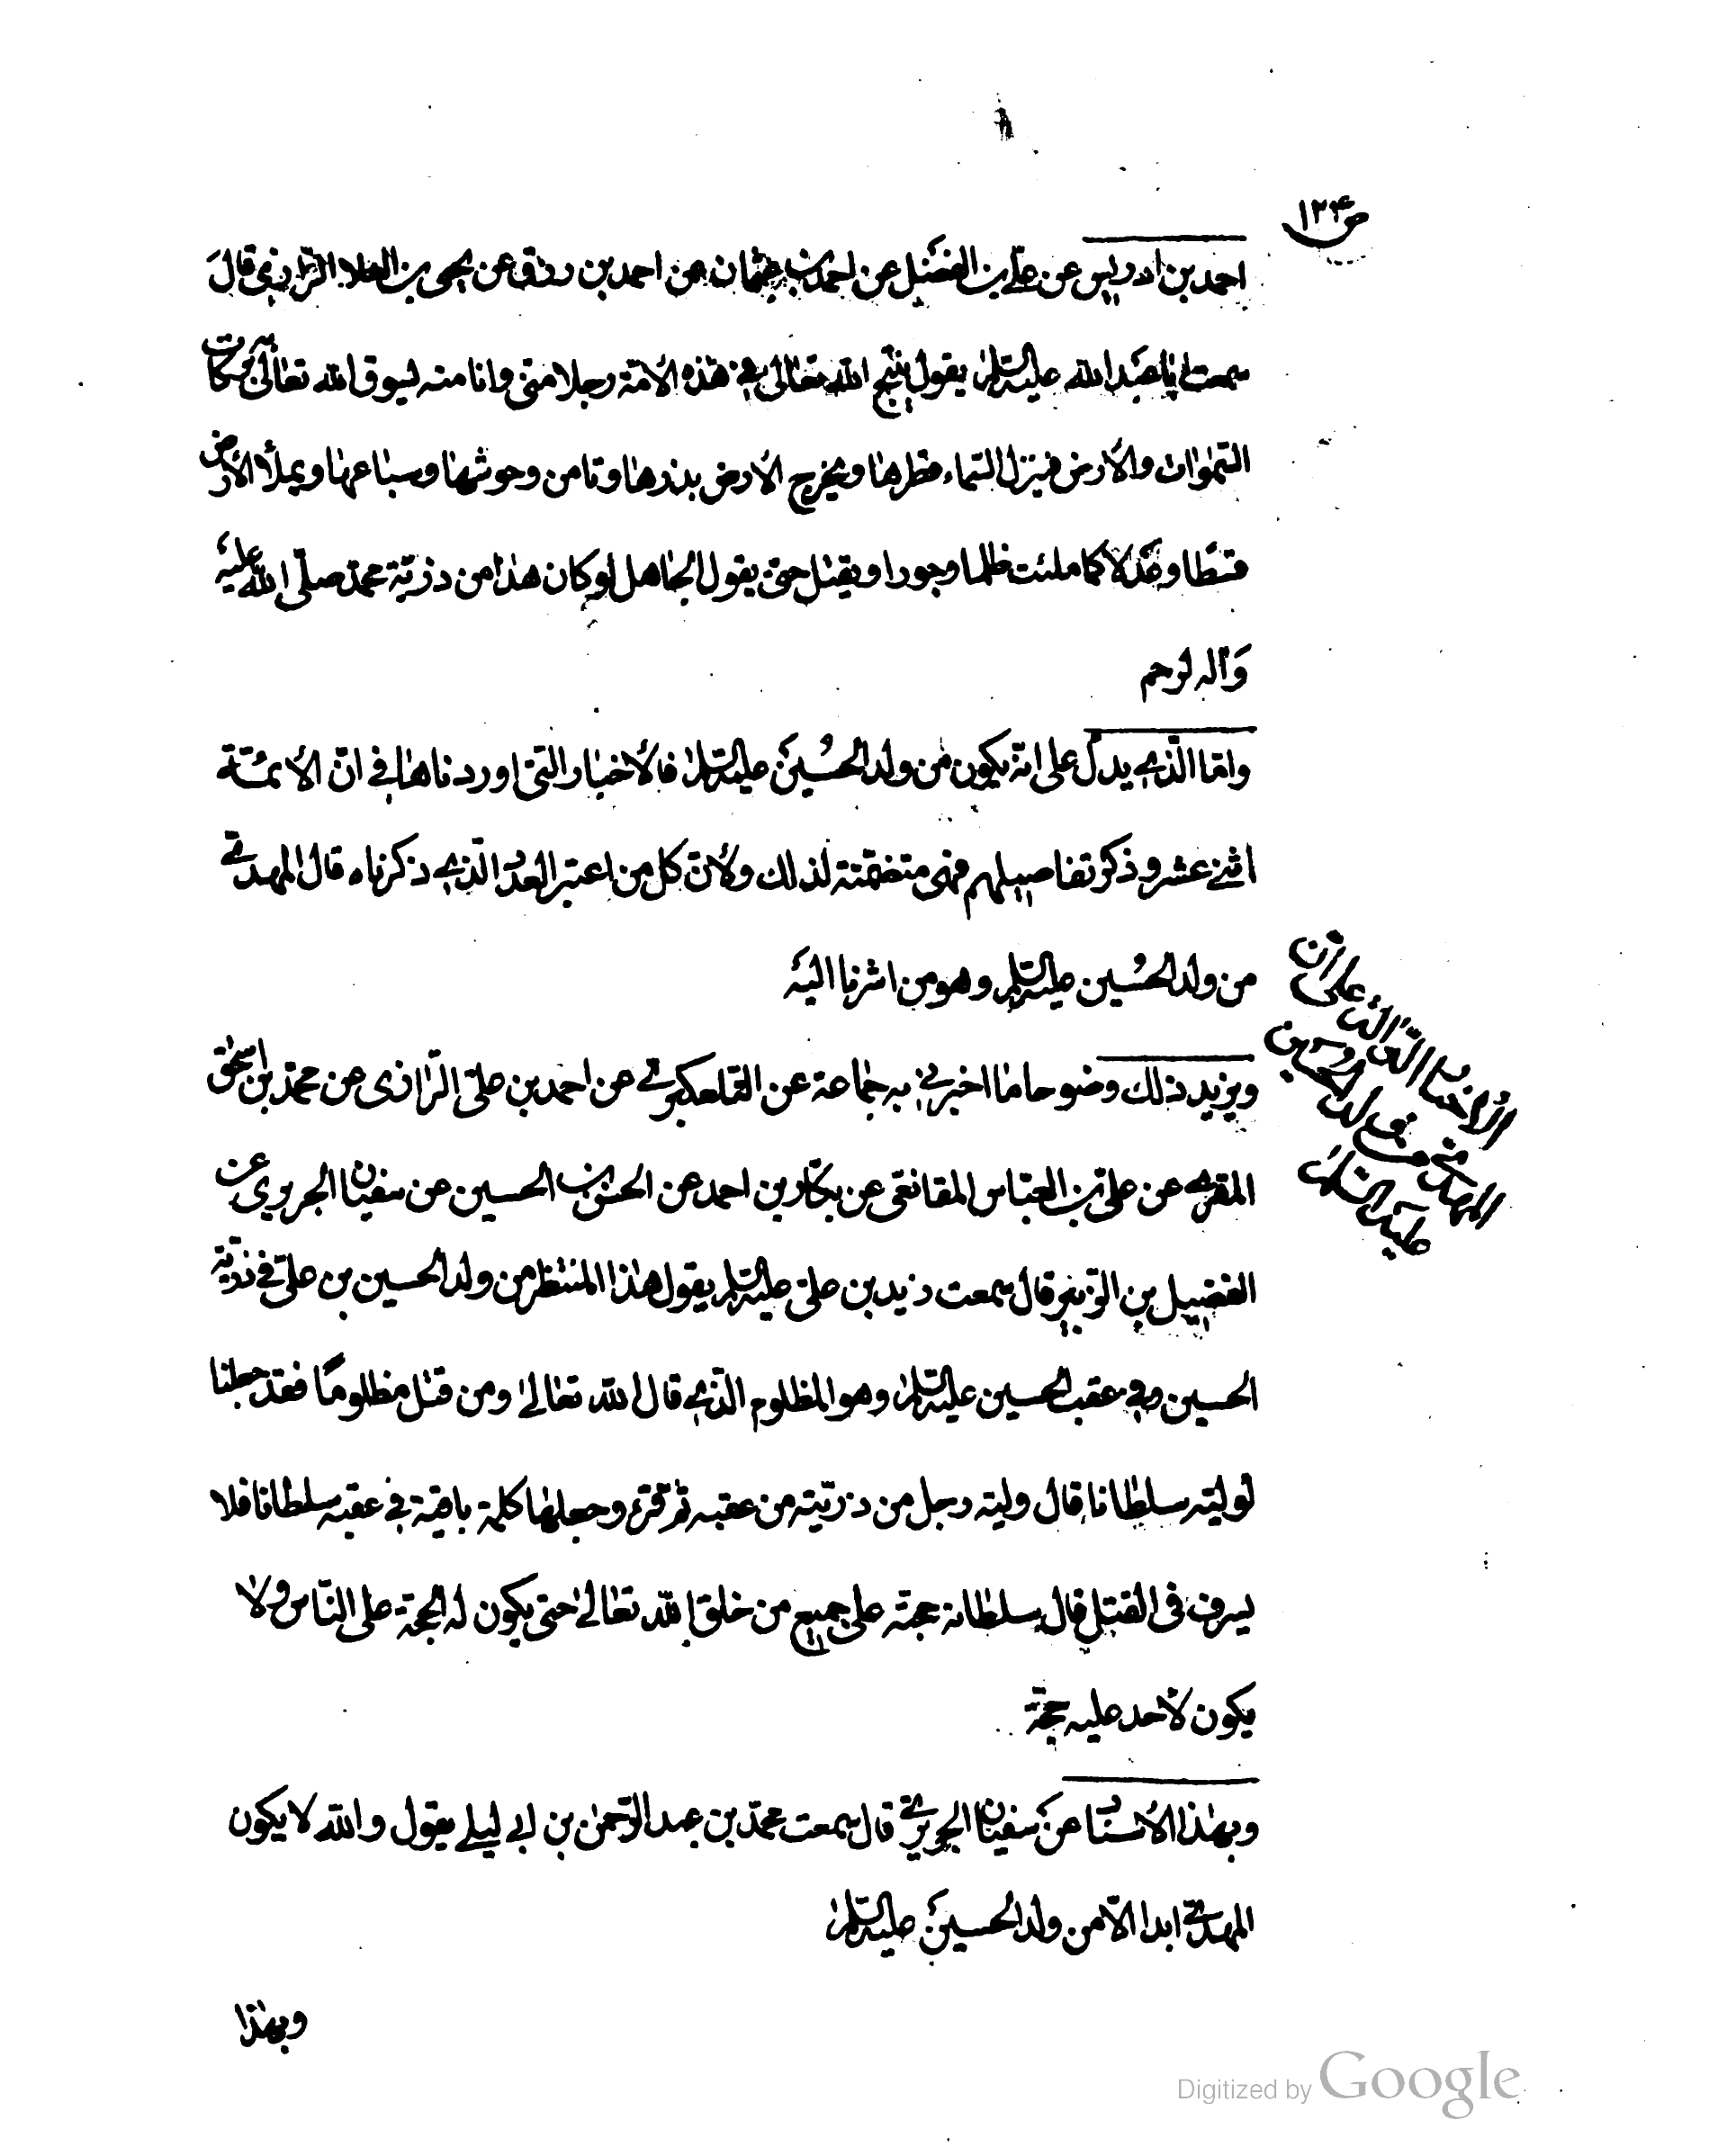 ص ١٢٤
احمد بن ادريس عن علي بن الفضيل عن احمد بن عثمان عن احمد بن رزق عن يحيى بن العلاء الرّازي قال
سمعت ابا عبد الله عليه السّلام يقول ينتج الله تعالى في هذه الأمّة رجلا منّي وانا منه يسوق الله تعالى به بركات
السّموات والأرض فينزل السّماء قطرها ويخرج الأرض بذرها وتأمن وحوشها وسباعها ويملأ الأرض
قسطا وعدلا كما ملئت ظلما وجورا ويقتل حتّى يقول الجاهل لو كان هذا من ذرّيّة محمّد صلّى الله عليه
وآله لرحم
وامّا الّذي يدلّ على انّه يكون من ولد الحسين عليه السّلام فالأخبار الّتي اوردناها في انّ الأئمّة
اثني عشر وذكر تفاصيلهم فهي متضمّنة لذلك ولأنّ كلّ من اعتبر العدد الّذي ذكرناه قال المهديّ
من ولد الحسين عليه السّلام وهو من اشرنا اليه
الأخبار الدّالّة على ان
المهدي من ولد الحسين
عليه السّلام
ويزيد ذلك وضوحا ما اخبرني به جماعة عن التّلعكبريّ عن احمد بن عليّ الرّازي عن محمّد بن اسحق
المقري عن عليّ بن العبّاس المقانعي عن بكّار بن احمد عن الحسن بن الحسين عن سفيان الجريري عن
الفضيل بن الزّبير قال سمعت زيد بن عليّ عليه السّلام يقول هذا المنتظر من ولد الحسين بن عليّ في ذرّيّة
الحسين وفي عقب الحسين عليه السّلام وهو المظلوم الّذي قال الله تعالى ومن قتل مظلومًا فقد جعلنا
لوليّه سلطانا قال وليّه رجل من ذرّيّته من عقبه ثمّ قرء وجعلها كلمة باقية في عقبه سلطانا فلا
يسرف في القتل قال سلطانه حجّته على جميع من خلق الله تعالى حتى يكون له الحجّة على النّاس ولا
يكون لأحد عليه حجّة
وبهذا الأسناد عن سفيان الجريريّ قال سمعت محمّد بن عبد الرّحمن بن ابي ليلى يقول والله لا يكون
المهديّ ابدا الّا من ولد الحسين عليه السّلام
وبهذا
Digitized by Google